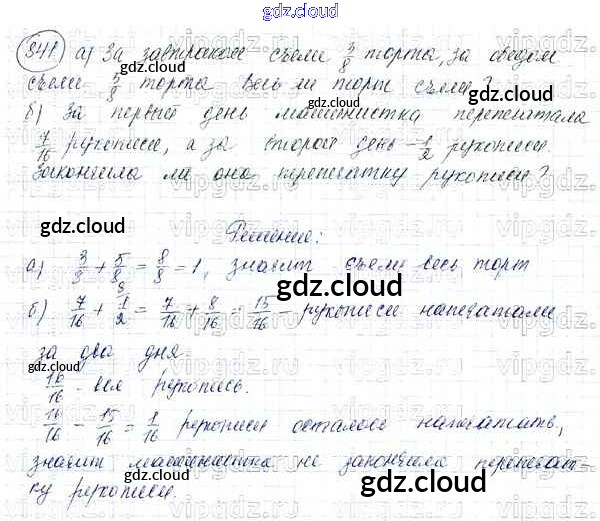 gdz.cloud
841 а) За завтраком съели 3/8 торта, за обедом
съели 5/8 торта. Весь ли торт съели?
б) За первый день машинистка перепечатала
7/16 рукописи, а за второй день – 1/2 рукописи.
Закончила ли она перепечатку рукописи?
gdz.cloud
Решение:
а) 3/8 + 5/8 = 8/8 = 1, значит съели весь торт
б) 7/16 + 1/2 = 7/16 + 8/16 = 15/16 – рукописи напечатали
за два дня.
16/16 – вся рукопись.
16/16 – 15/16 = 1/16 рукописи осталось напечатать,
значит машинистка не закончила перепечат-
ку рукописи.
gdz.cloud
gdz.cloud
gdz.cloud
gdz.cloud
gdz.cloud
vipgdz.